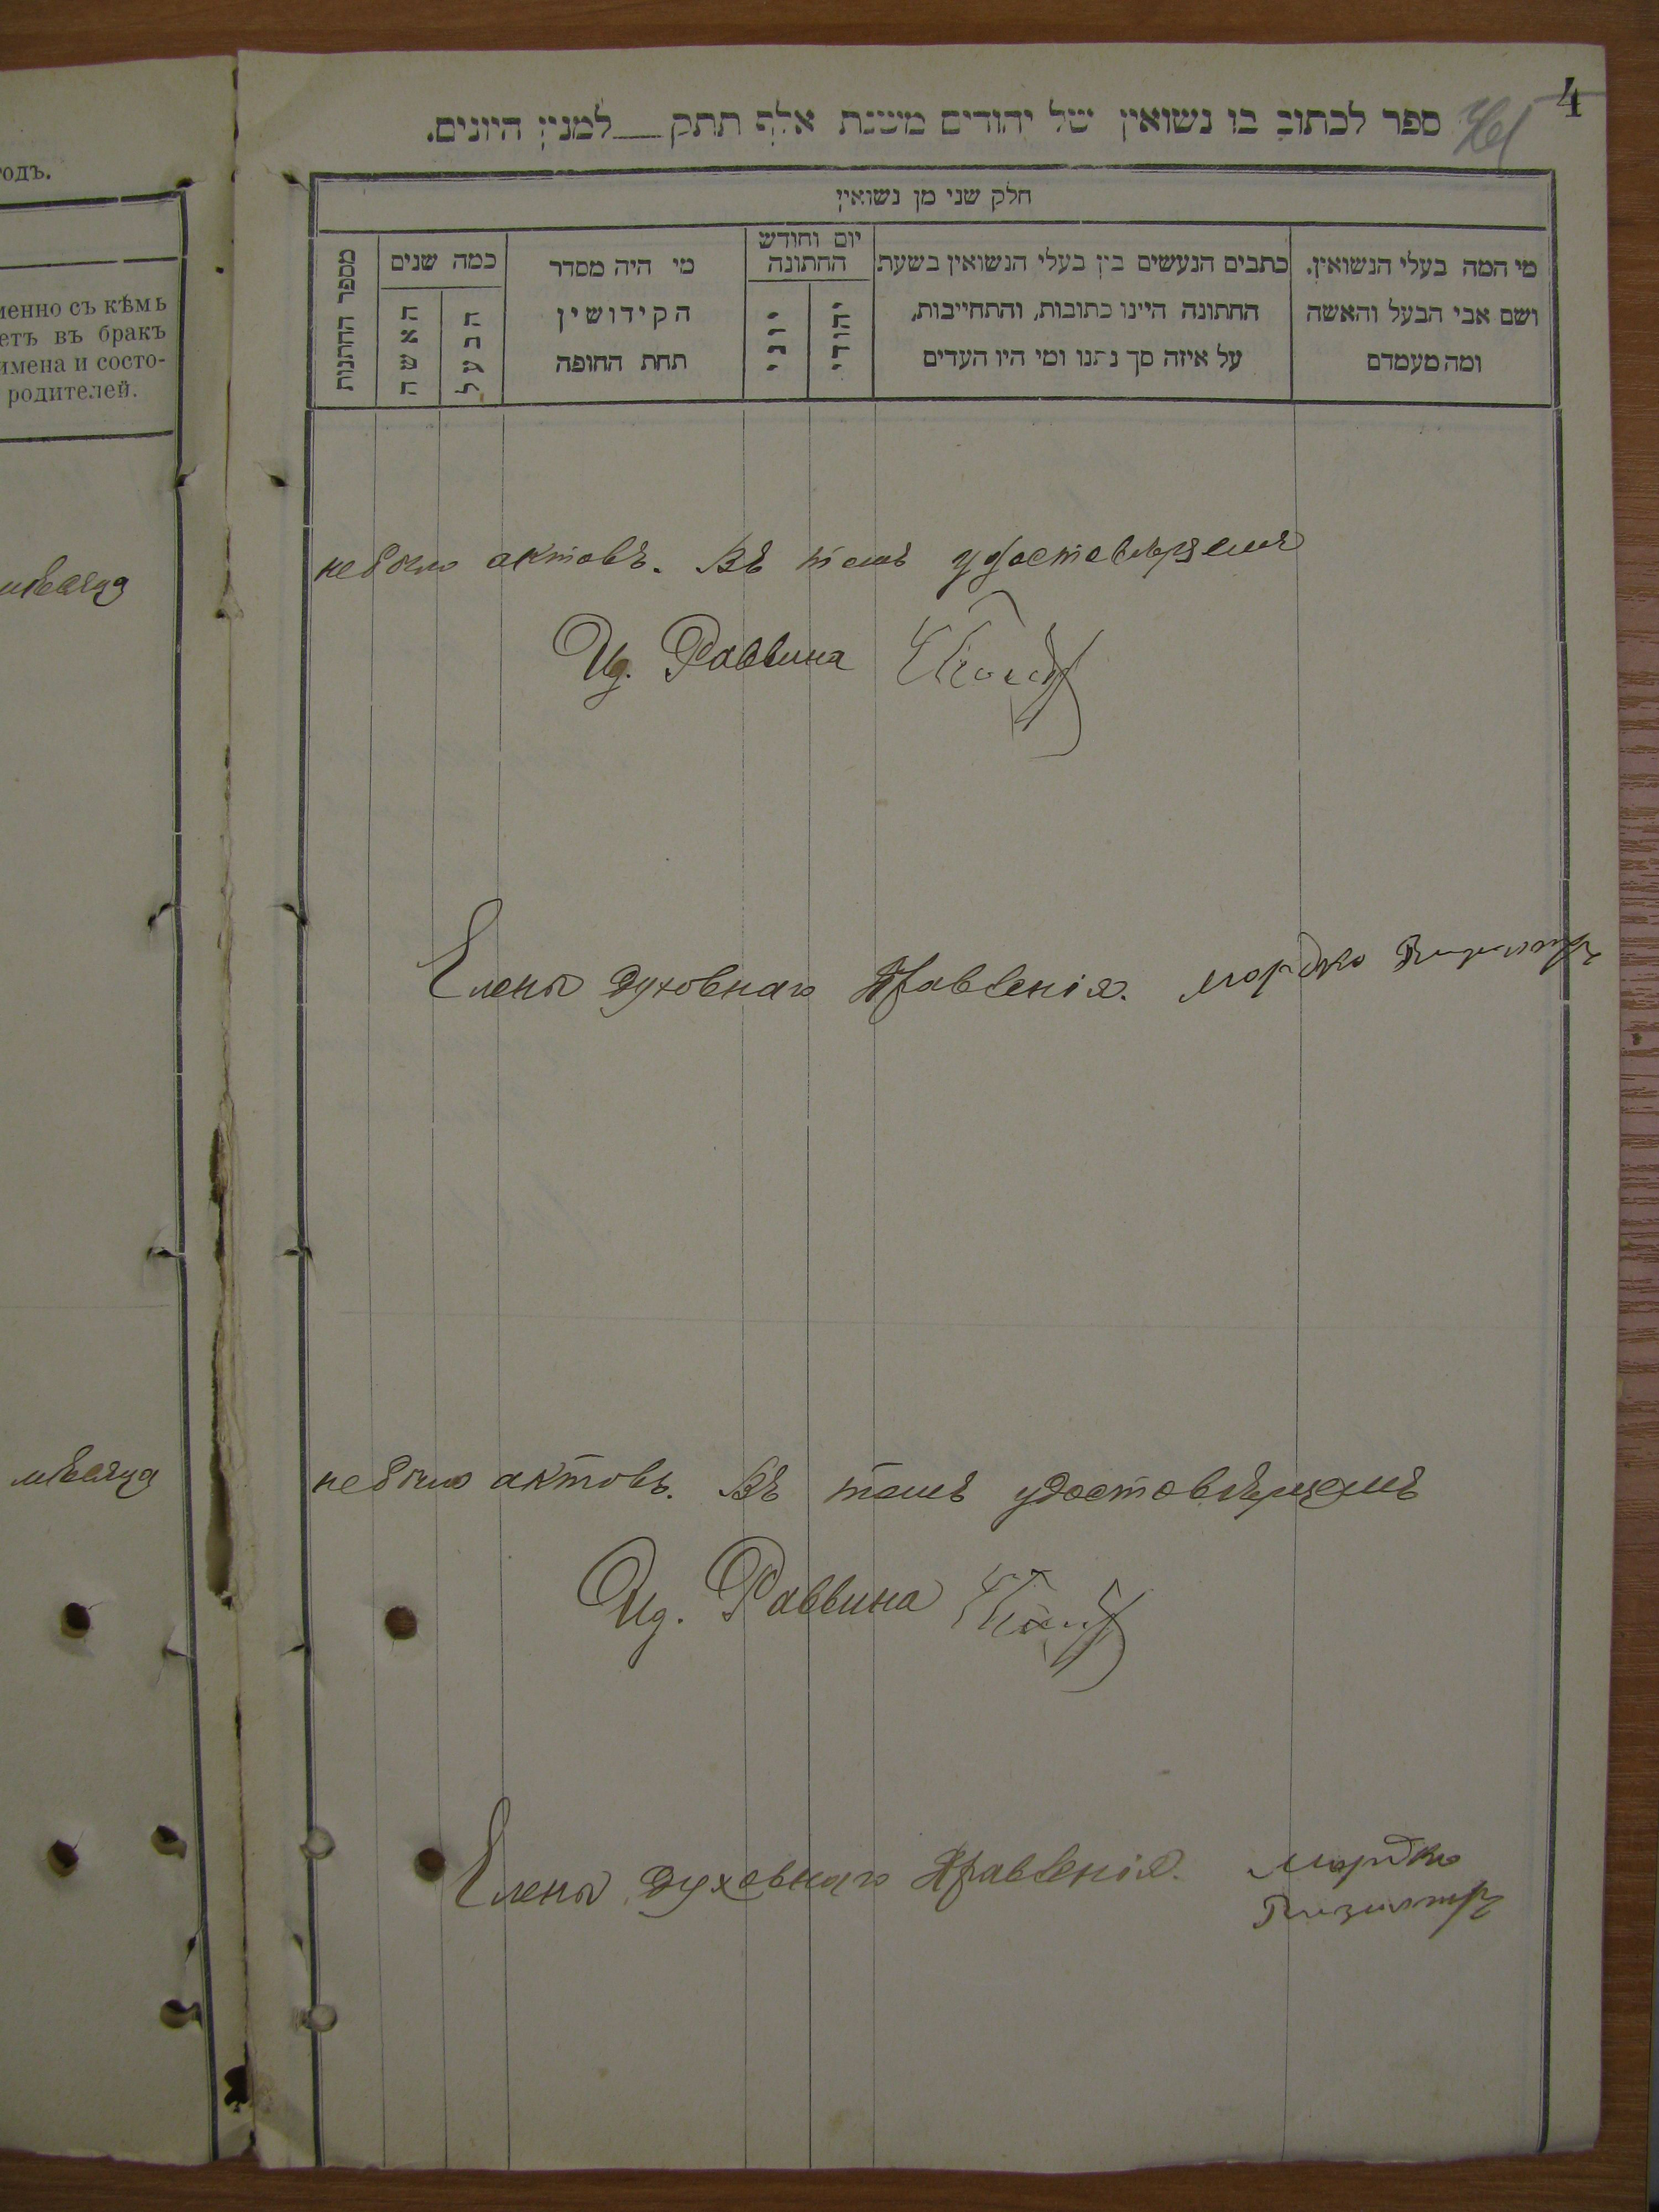 4
ספר לכתוב בו נשואין של יהודים משנת אלף תתק__למנין היונים.
חלק שני מן נשואין
מי המה בעלי הנשואין.
ושם אבי הבעל והאשה
ומה מעמדם
כתבים הנעשים בין בעלי הנשואין בשעת
החתונה היינו כתובות, והתחייבות,
על איזה סך נתנו ומי היו העדים
יום וחודש
החתונה
יהודי
יוני
מי היה מסדר
הקידושין
תחת החופה
כמה שנים
הבעל
האשה
מספר החתנות
годъ.
менно съ кѣмъ
етъ въ бракъ
имена и состо-
родителей.
мѣсяца
небыло актовъ. Въ томъ удостовѣряемъ
Ид. Раввина
Члены Духовнаго Правленія. Мордко
мѣсяца
небыло актовъ. Въ томъ удостовѣряемъ
Ид. Раввина
Члены Духовнаго Правленія. Мордко